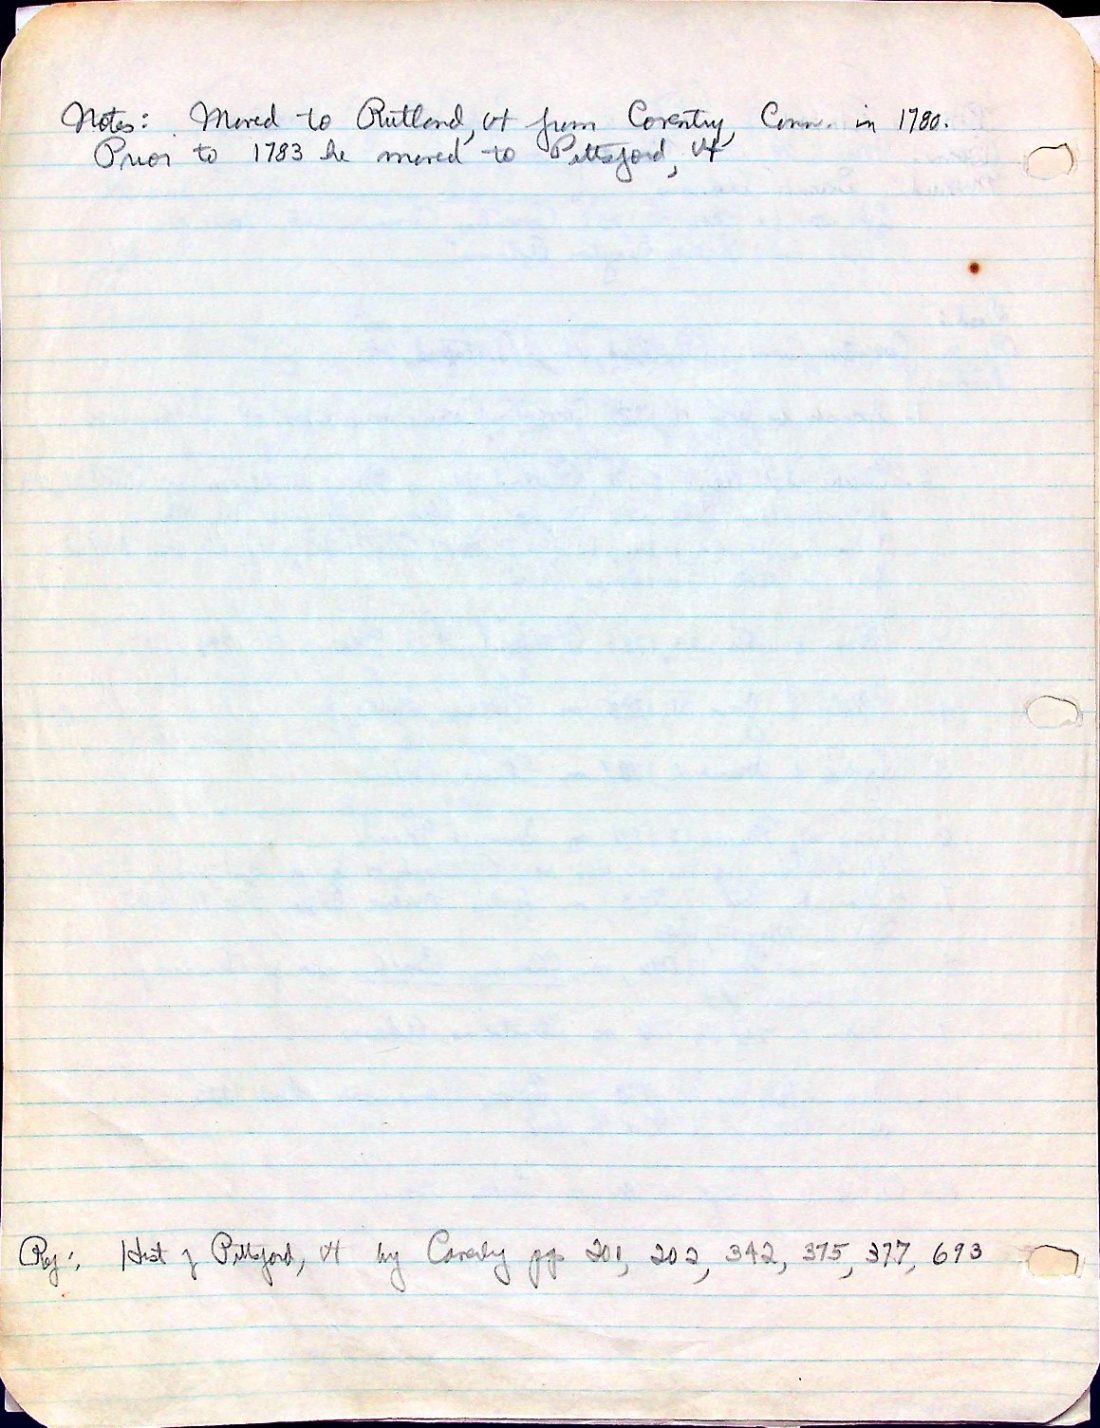 Notes: Moved to Rutland, Vt from Coventry, Conn. in 1780.
Prior to 1783 he moved to Pittsford, Vt
Ref: Hist of Pittsford, Vt by Caverly pp 201, 202, 342, 375, 377, 693